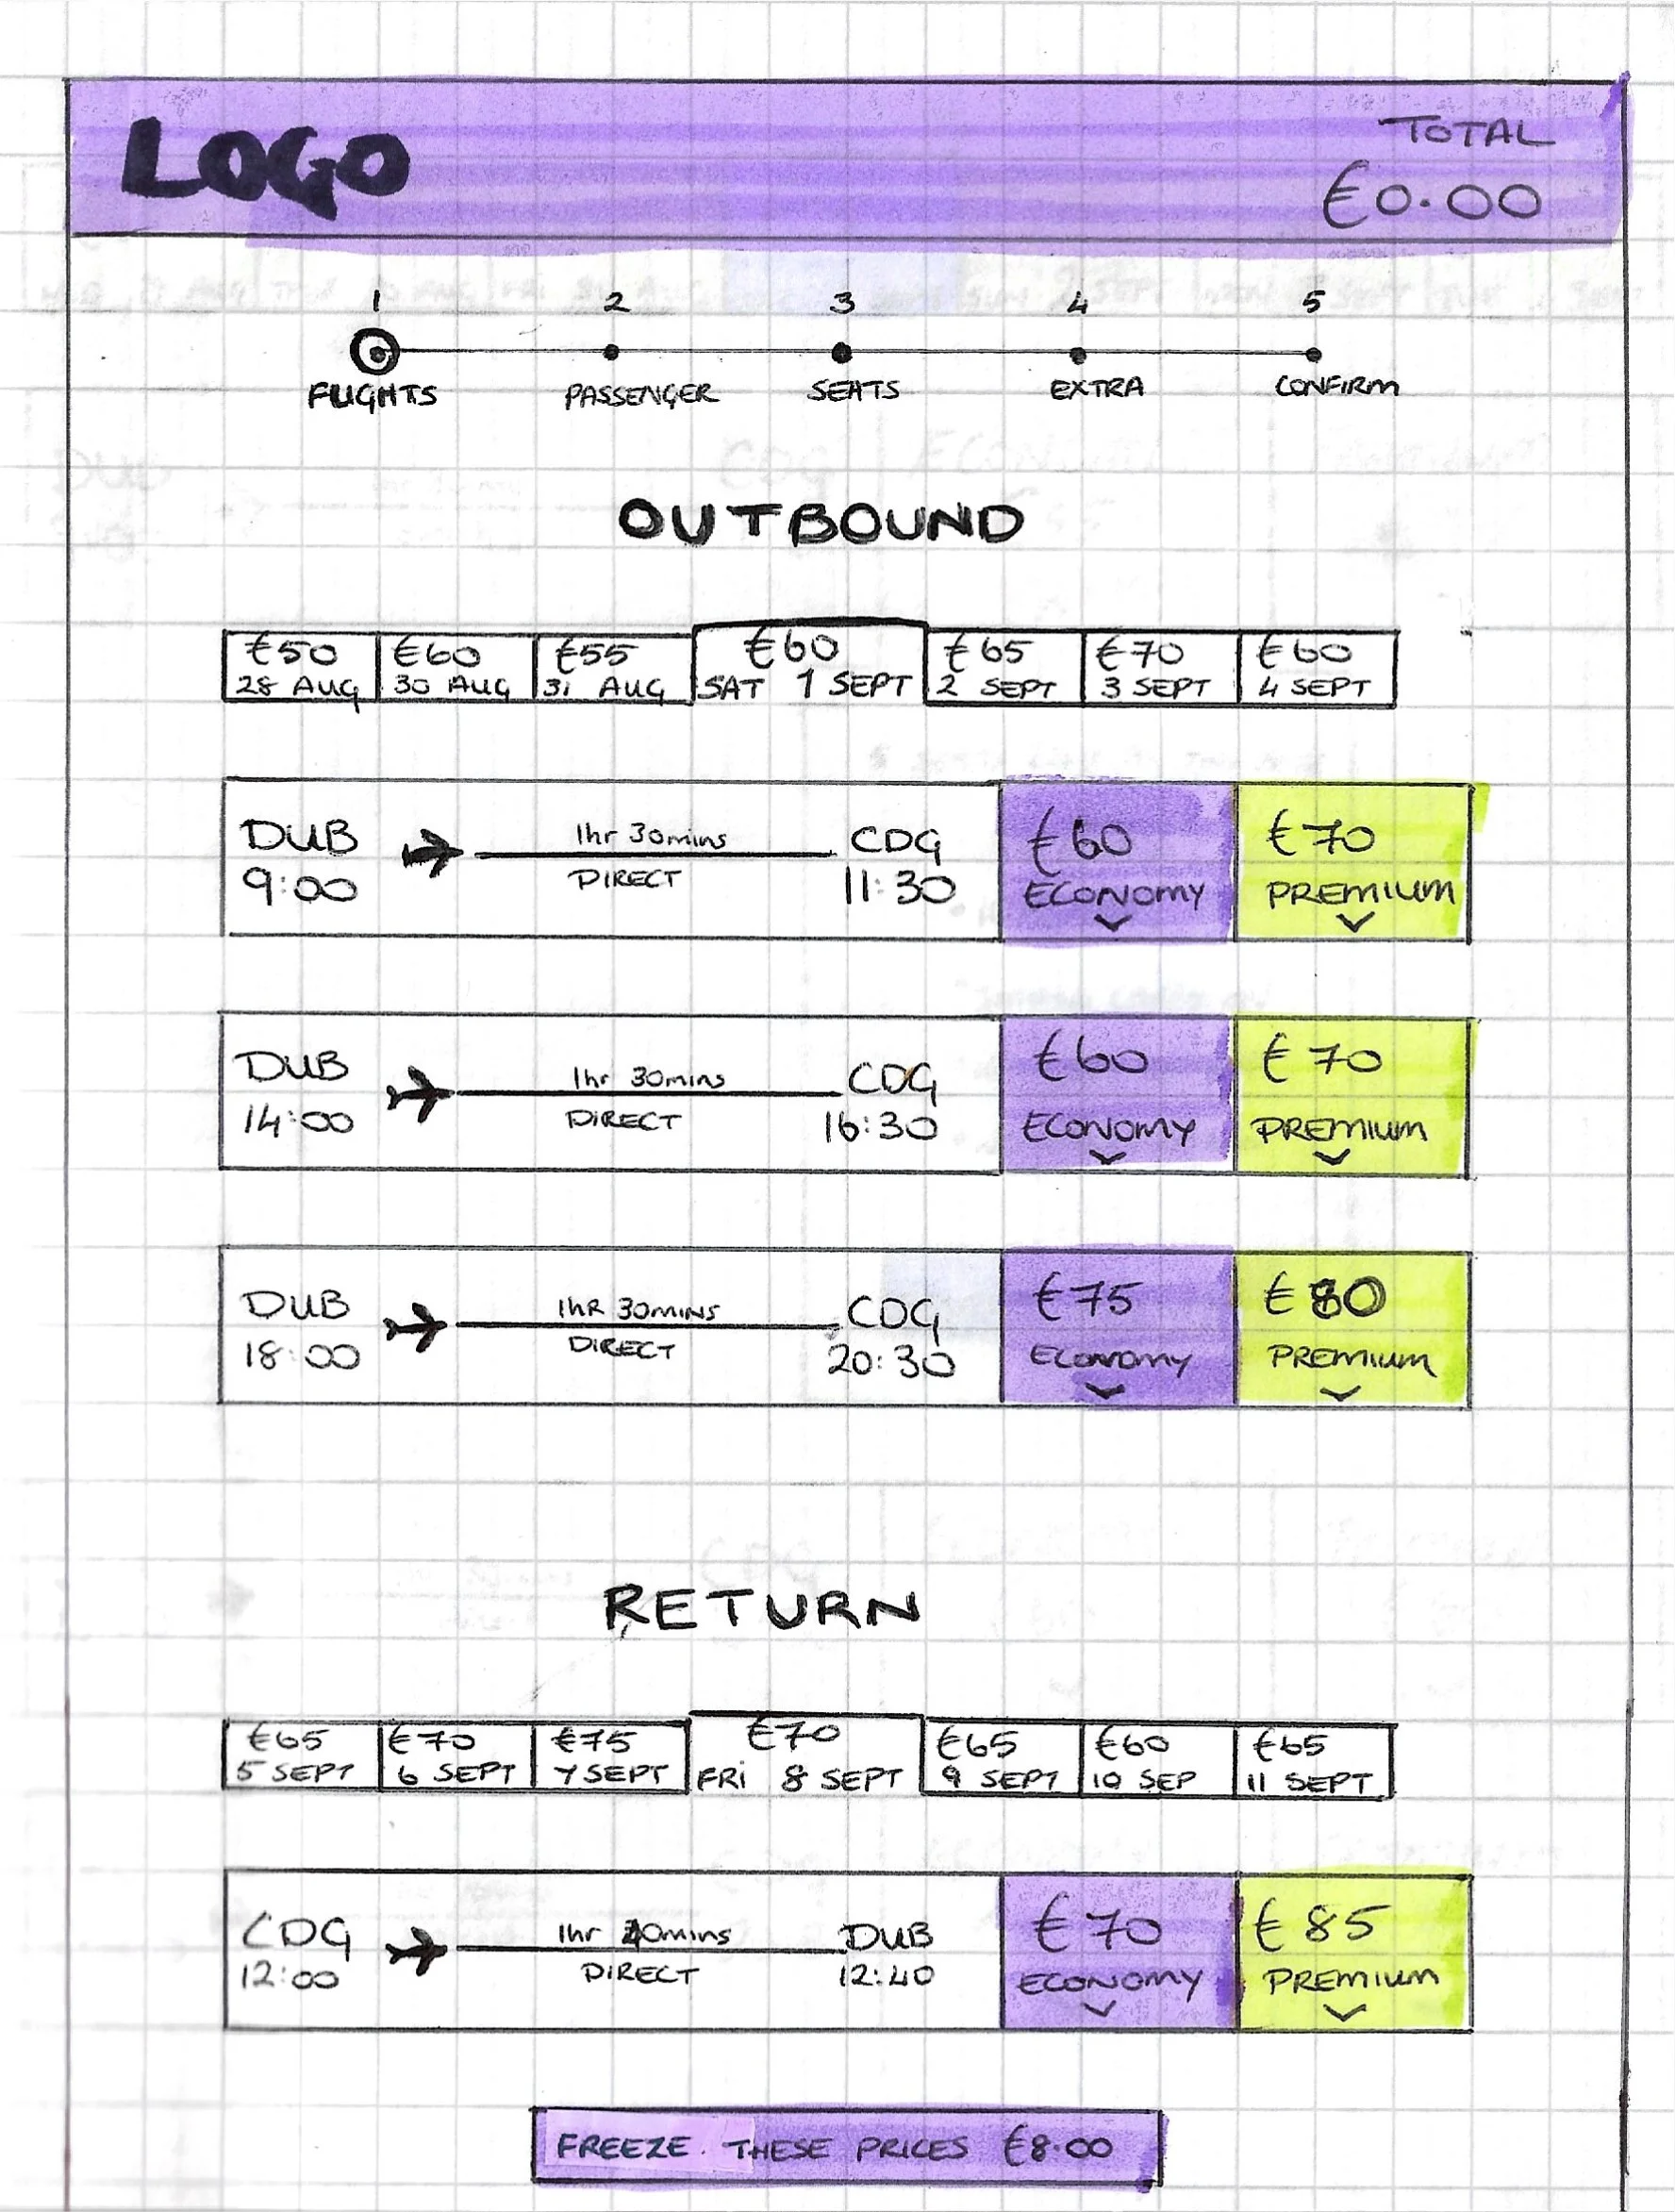 LOGO
TOTAL
€0.00
1 2 3 4 5
FLIGHTS PASSENGER SEATS EXTRA CONFIRM
OUTBOUND
€50 €60 €55 €60 €65 €70 €60
28 AUG 30 AUG 31 AUG SAT 1 SEPT 2 SEPT 3 SEPT 4 SEPT
DUB 1hr 30mins CDG €60 €70
9:00 DIRECT 11:30 ECONOMY PREMIUM
DUB 1hr 30mins CDG €60 €70
14:00 DIRECT 16:30 ECONOMY PREMIUM
DUB 1HR 30MINS CDG €75 €80
18:00 DIRECT 20:30 ECONOMY PREMIUM
RETURN
€65 €70 €75 €70 €65 €60 €65
5 SEPT 6 SEPT 7 SEPT FRI 8 SEPT 9 SEPT 10 SEP 11 SEPT
CDG 1hr DUB €70 €85
12:00 DIRECT 12:40 ECONOMY PREMIUM
FREEZE THESE PRICES €8.00